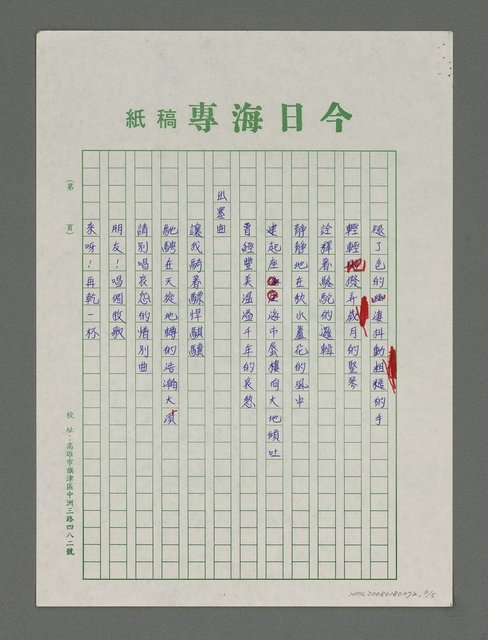 今日海專稿紙
褪了色的凄抖動粗糙的手
輕輕撥弄歲月的豎琴
詮釋着駱駝的邏輯
靜靜地在秋水蘆花的風中
建起座座海市蜃樓向大地傾吐
曾經豐美溫溢千年的哀愁
出塞曲
讓我騎着驃悍騏驥
馳騁在天旋地轉的浩瀚大漠
請別唱哀怨的惜別曲
朋友！唱個牧歌
來呀！再乾一杯
（第　頁）
校址：高雄市旗津區中洲三路四八二號
NMTL20080180272, 3/5